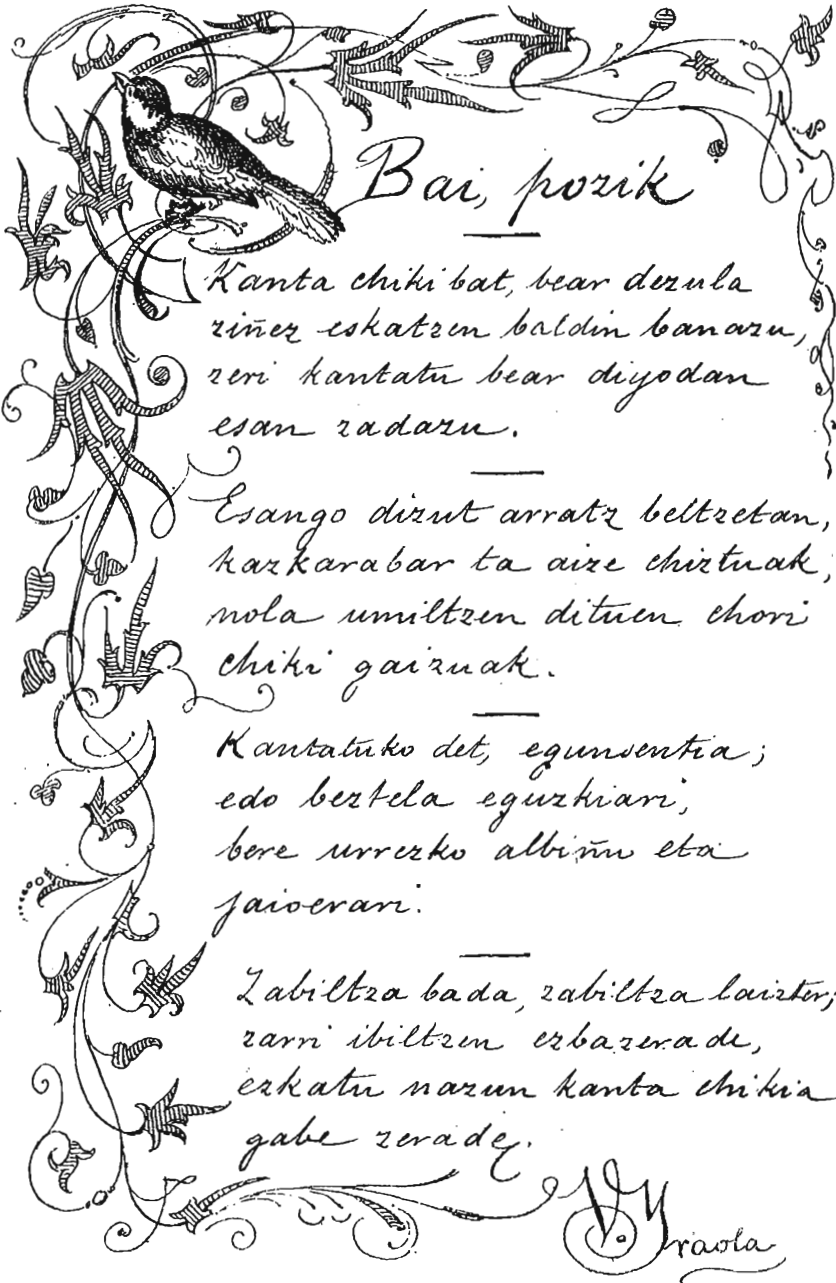 Bai, pozik
Kanta chiki bat, bear dezula
ziñez eskatzen baldin banazu,
zeri kantatu bear diyodan
esan zadazu.
Esango dizut arratz beltzetan,
kazkarabar ta aize chiztuak,
nola umiltzen dituen chori
chiki gaizuak.
Kantatuko det, egunsentia;
edo beztela eguzkiari,
bere urrezko albiñu eta
jaioerari.
Zabiltza bada, zabiltza laizter;
zarri ibiltzen ezbazerade,
ezkatu nazun kanta chikia
gabe zerade.
V. Yraola